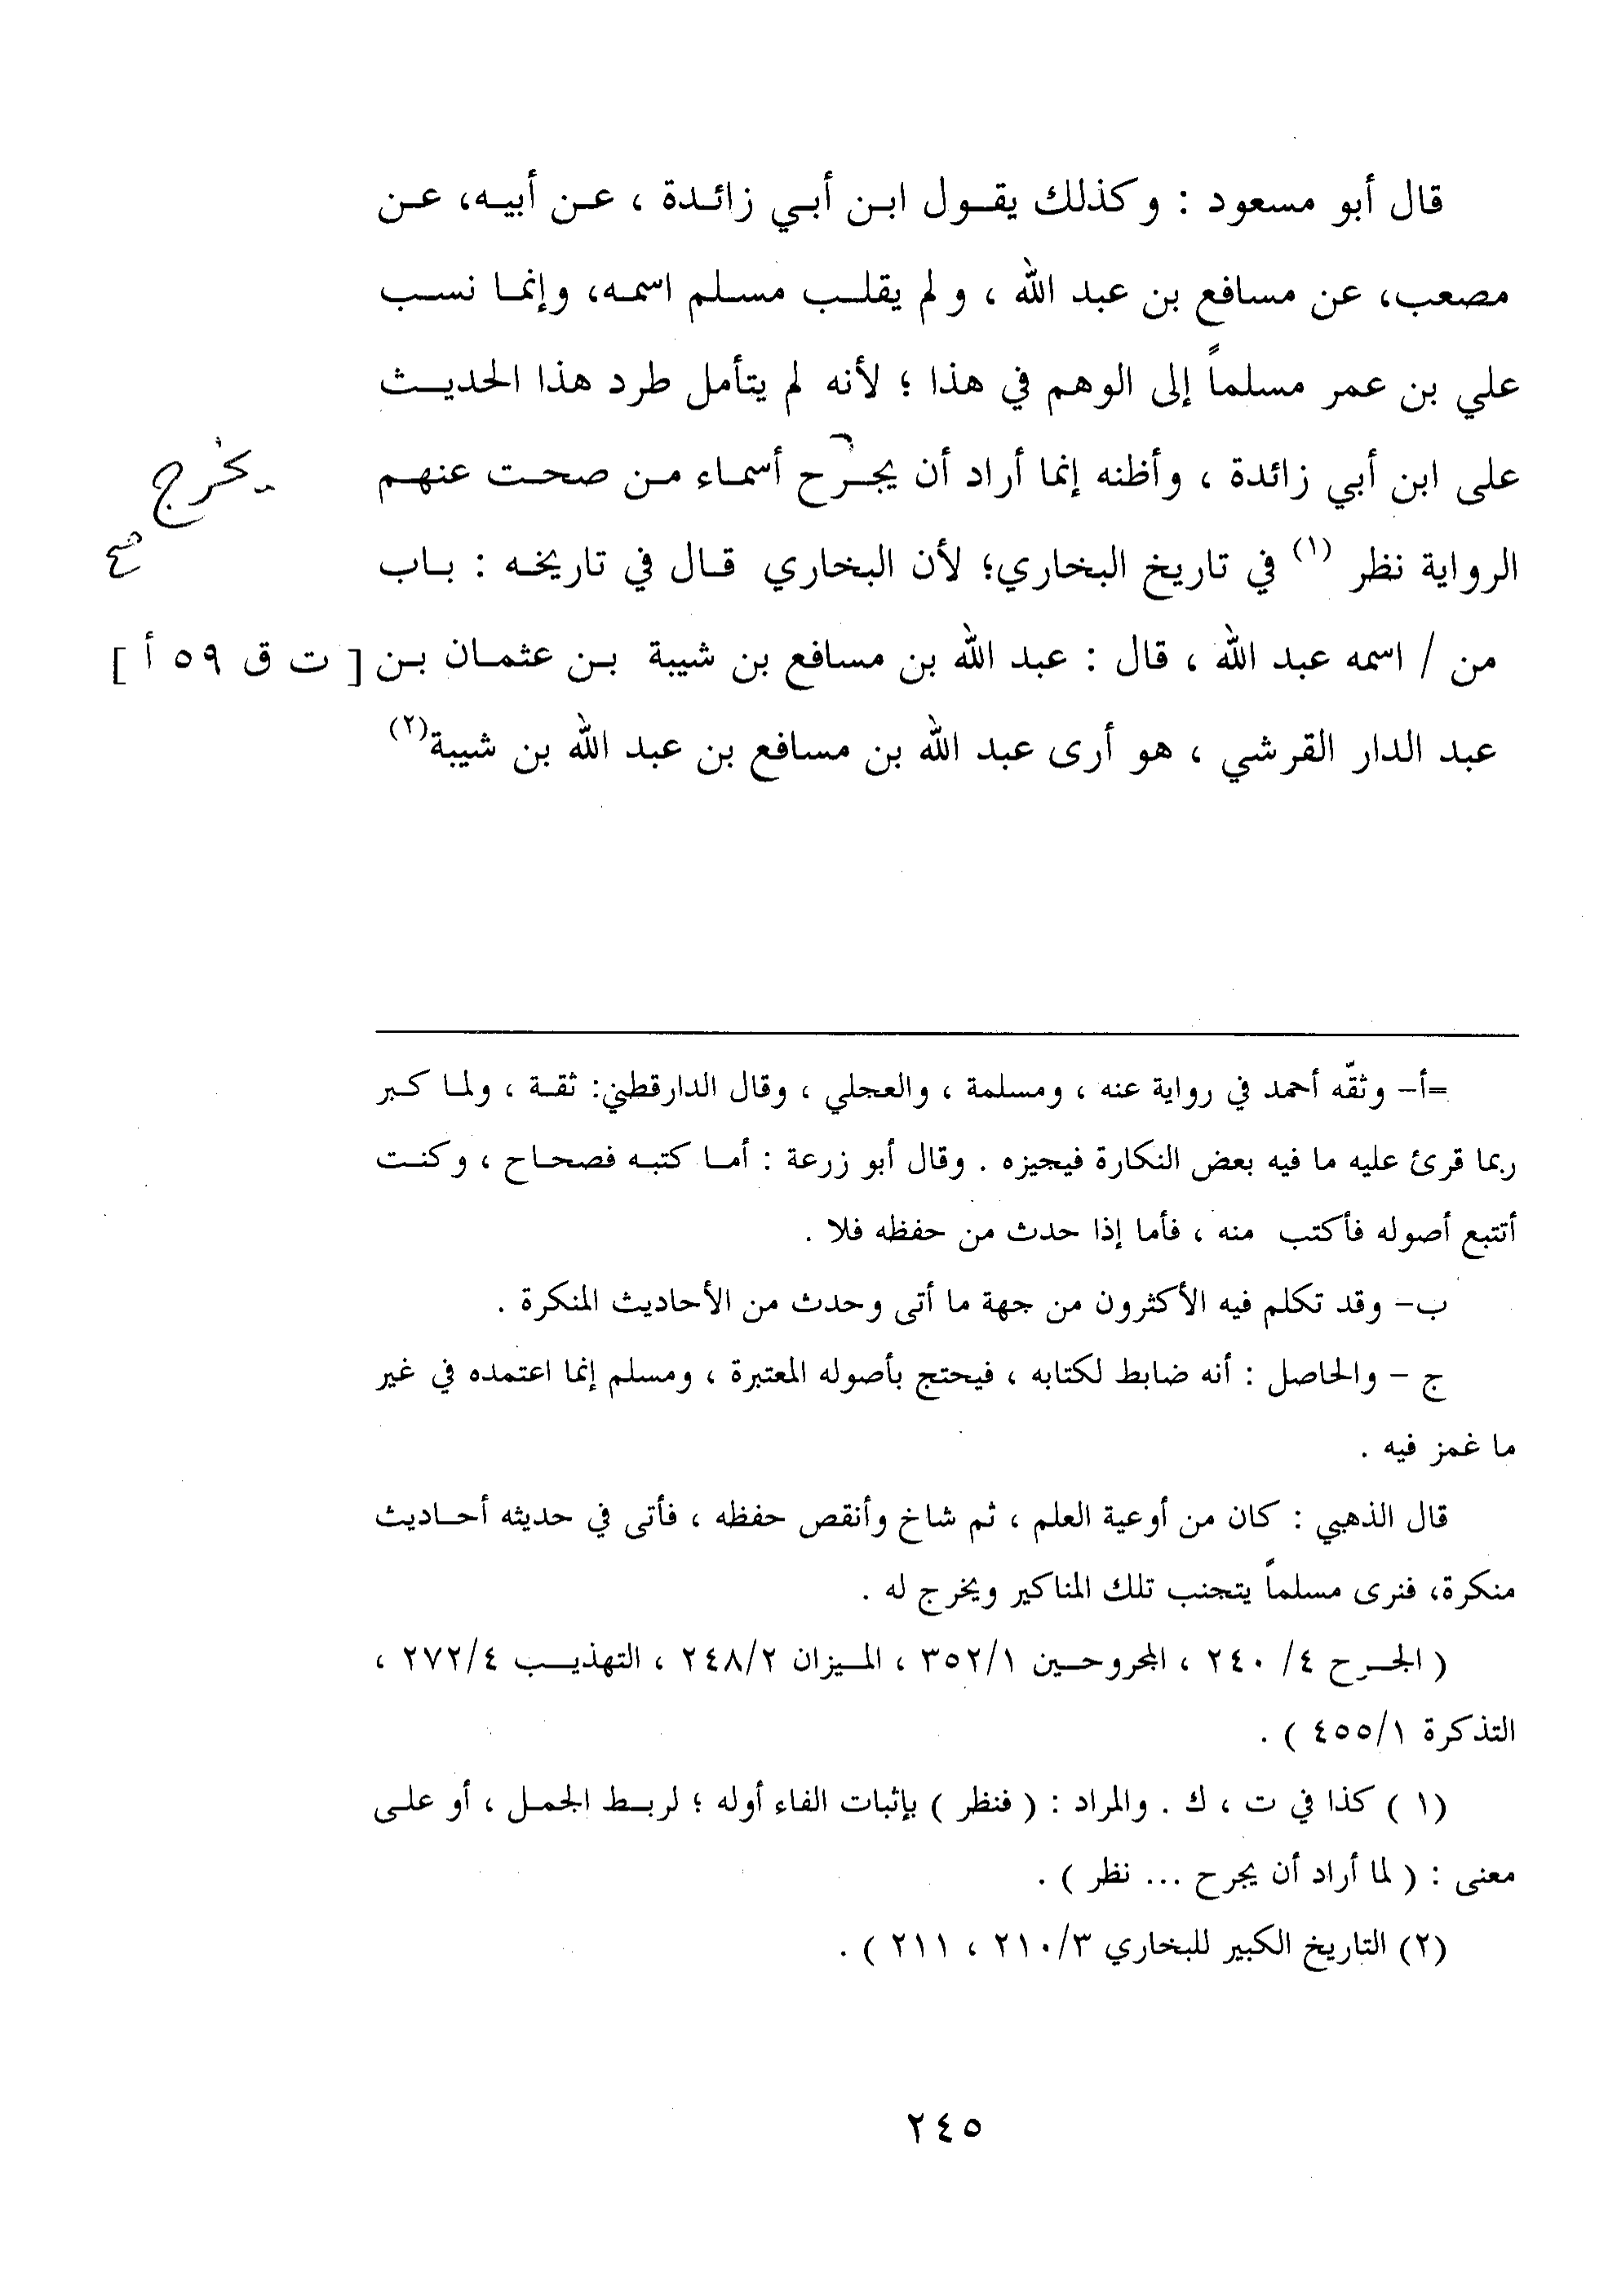 قال أبو مسعود : وكذلك يقول ابن أبي زائدة ، عن أبيه، عن
مصعب، عن مسافع بن عبد الله ، ولم يقلب مسلم اسمه، وإنما نسب
علي بن عمر مسلماً إلى الوهم في هذا ؛ لأنه لم يتأمل طرد هذا الحديث
على ابن أبي زائدة ، وأظنه إنما أراد أن يجرح أسماء من صحت عنهم
يخرج
الرواية نظر (١) في تاريخ البخاري؛ لأن البخاري قال في تاريخه : باب
من / اسمه عبد الله ، قال : عبد الله بن مسافع بن شيبة بن عثمان بن [ ت ق ٥٩ أ ]
عبد الدار القرشي ، هو أرى عبد الله بن مسافع بن عبد الله بن شيبة(٢)
=أ- وثقّه أحمد في رواية عنه ، ومسلمة ، والعجلي ، وقال الدارقطني: ثقة ، ولما كبر
ربما قرئ عليه ما فيه بعض النكارة فيجيزه . وقال أبو زرعة : أما كتبه فصحاح ، وكنت
أتتبع أصوله فأكتب منه ، فأما إذا حدث من حفظه فلا .
ب- وقد تكلم فيه الأكثرون من جهة ما أتى وحدث من الأحاديث المنكرة .
ج - والحاصل : أنه ضابط لكتابه ، فيحتج بأصوله المعتبرة ، ومسلم إنما اعتمده في غير
ما غمز فيه .
قال الذهبي : كان من أوعية العلم ، ثم شاخ وأنقص حفظه ، فأتى في حديثه أحاديث
منكرة، فنرى مسلماً يتجنب تلك المناكير ويخرج له .
( الجرح ٤/ ٢٤٠ ، المجروحين ٣٥٢/١ ، الميزان ٢٤٨/٢ ، التهذيب ٢٧٢/٤ ،
التذكرة ٤٥٥/١ ) .
(١ ) كذا في ت ، ك . والمراد : ( فنظر ) بإثبات الفاء أوله ؛ لربط الجمل ، أو على
معنى : ( لما أراد أن يجرح ... نظر ) .
(٢) التاريخ الكبير للبخاري ٢١٠/٣ ، ٢١١ ) .
٢٤٥